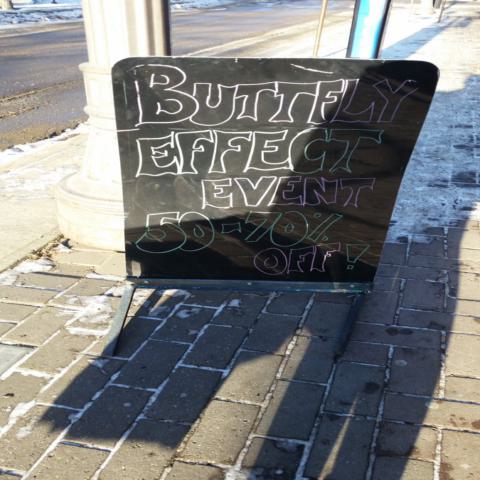 BUTTFLY
EFFECT
EVENT
50-70%
OFF!